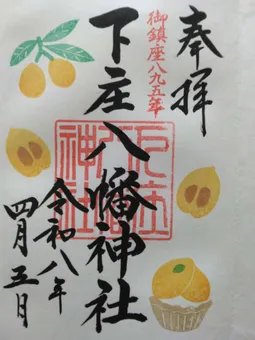 奉拝
御鎮座八九五年
下庄八幡神社
下庄八幡神社
令和八年
四月五日